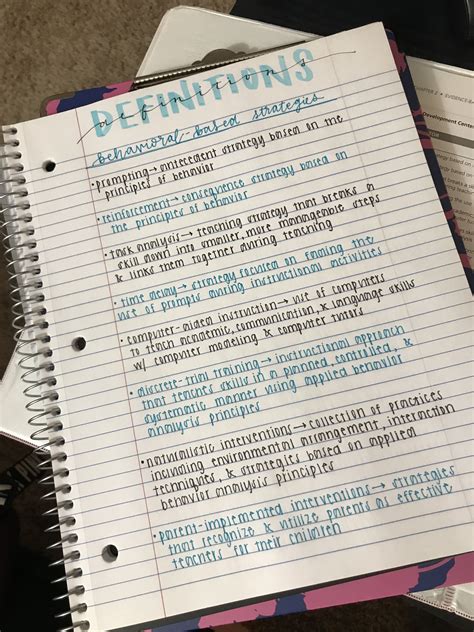 DEFINITIONS
definitions
behavioral-based strategies
•prompting → antecedent strategy based on the
principles of behavior
•reinforcement → consequence strategy based on
the principles of behavior
•task analysis → teaching strategy that breaks a
skill down into smaller, more manageable steps
& links them together during teaching
•time delay → strategy focused on fading the
use of prompts during instructional activities
•computer-aided instruction → use of computers
to teach academic, communication, & language skills
w/ computer modeling & computer tutors
•discrete-trial training → instructional approach
that teaches skills in a planned, controlled, &
systematic manner using applied behavior
analysis principles
•naturalistic interventions → collection of practices
including environmental arrangement, interaction
techniques, & strategies based on applied
behavior analysis principles
•parent-implemented interventions → strategies
that recognize & utilize parents as effective
teachers for their children
CHAPTER 2 • EVIDENCE
Development Center